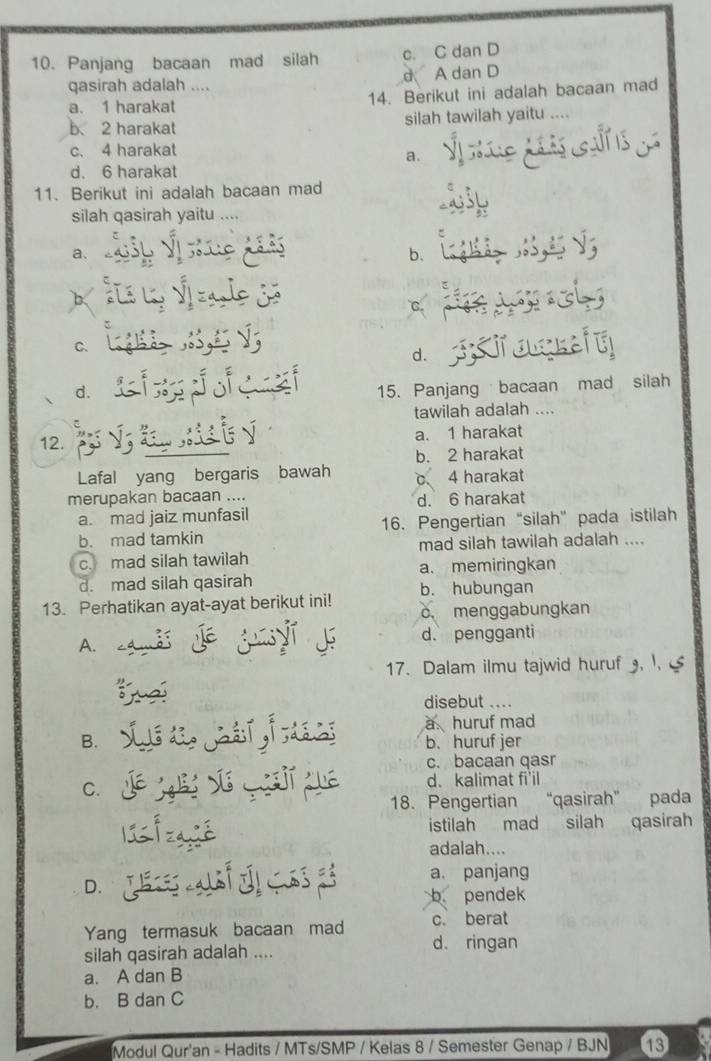 10. Panjang bacaan mad silah
qasirah adalah ....
a. 1 harakat
b. 2 harakat
c. 4 harakat
d. 6 harakat
11. Berikut ini adalah bacaan mad
silah qasirah yaitu ....
a. يَشْفَعُ عِنْدَهُۥٓ إِلَّا بِإِذْنِهِۦ
b. مِّنْ عِلْمِهِۦٓ إِلَّا بِمَا شَآءَ
c. وَلَا يَـُٔودُهُۥ حِفْظُهُمَا
d. أَيَحْسَبُ أَن لَّمْ يَرَهُۥٓ أَحَدٌ
12. لَا تَأْخُذُهُۥ سِنَةٌ وَلَا نَوْمٌ
Lafal yang bergaris bawah
merupakan bacaan ....
a. mad jaiz munfasil
b. mad tamkin
c. mad silah tawilah
d. mad silah qasirah
13. Perhatikan ayat-ayat berikut ini!
A. بَلِ الْإِنسَٰنُ عَلَىٰ نَفْسِهِۦ
بَصِيرَةٌ
B. نِّصْفَهُۥٓ أَوِ انقُصْ مِنْهُ قَلِيلًا
C. عَٰلِمُ الْغَيْبِ فَلَا يُظْهِرُ عَلَىٰ
غَيْبِهِۦٓ أَحَدًا
D. ثُمَّ ذَهَبَ إِلَىٰٓ أَهْلِهِۦ يَتَمَطَّىٰٓ
Yang termasuk bacaan mad
silah qasirah adalah ....
a. A dan B
b. B dan C
c. C dan D
d. A dan D
14. Berikut ini adalah bacaan mad
silah tawilah yaitu ....
a. مَن ذَا الَّذِى يَشْفَعُ عِنْدَهُۥٓ إِلَّا
بِإِذْنِهِۦ
b. وَلَا يَـُٔودُهُۥ حِفْظُهُمَا
c. وَجِا۟ىٓءَ يَوْمَئِذٍۭ بِجَهَنَّمَ
d. إِنَّآ أَعْطَيْنَٰكَ الْكَوْثَرَ
15. Panjang bacaan mad silah
tawilah adalah ....
a. 1 harakat
b. 2 harakat
c. 4 harakat
d. 6 harakat
16. Pengertian “silah” pada istilah
mad silah tawilah adalah ....
a. memiringkan
b. hubungan
c. menggabungkan
d. pengganti
17. Dalam ilmu tajwid huruf و, ا, ي
disebut ....
a. huruf mad
b. huruf jer
c. bacaan qasr
d. kalimat fi'il
18. Pengertian “qasirah” pada
istilah mad silah qasirah
adalah....
a. panjang
b. pendek
c. berat
d. ringan
Modul Qur'an - Hadits / MTs/SMP / Kelas 8 / Semester Genap / BJN 13